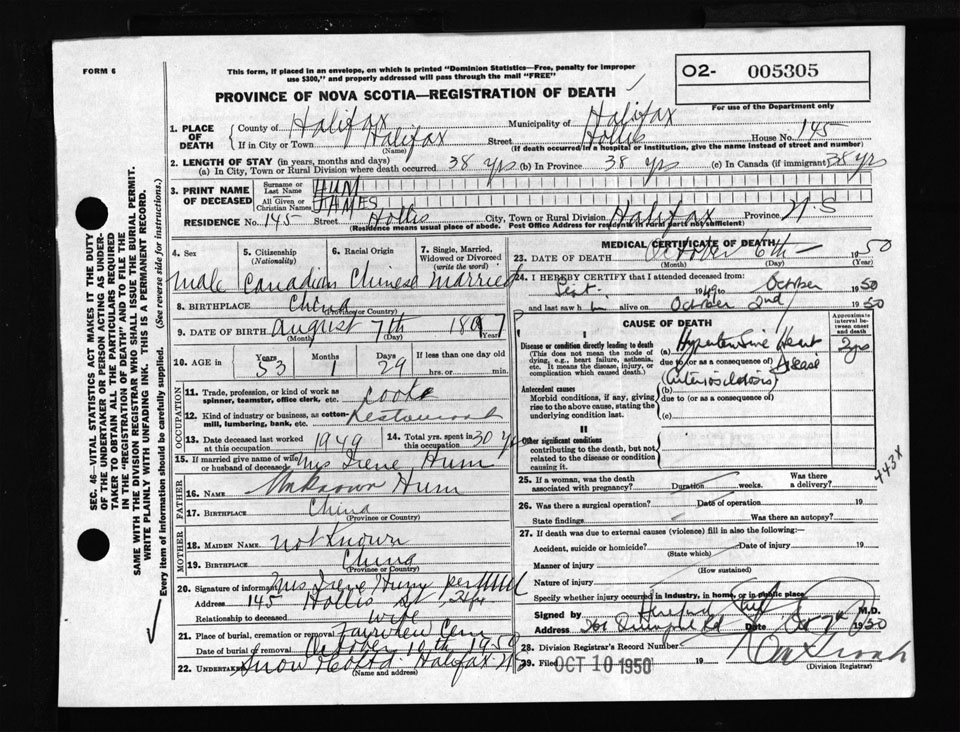 FORM 6
This form, if placed in an envelope, on which is printed "Dominion Statistics—Free, penalty for improper
use $300," and properly addressed will pass through the mail "FREE"
O2- 005305
For use of the Department only
PROVINCE OF NOVA SCOTIA—REGISTRATION OF DEATH
1. PLACE OF DEATH
County of Halifax Municipality of Halifax
If in City or Town Halifax Street Hollis House No. 145
(Name) (If death occurred in a hospital or institution, give the name instead of street and number)
2. LENGTH OF STAY (in years, months and days)
(a) In City, Town or Rural Division where death occurred 38 yrs (b) In Province 38 yrs (c) In Canada (if immigrant) 38 yrs
3. PRINT NAME OF DECEASED
Surname or Last Name HUM
All Given or Christian Names JAMES
RESIDENCE No. 145 Street Hollis City, Town or Rural Division Halifax Province N.S
(Residence means usual place of abode. Post Office Address for residents in rural parts not sufficient)
4. Sex 5. Citizenship (Nationality) 6. Racial Origin 7. Single, Married, Widowed or Divorced (write the word)
male Canadian Chinese married
8. BIRTHPLACE China
(Province or Country)
9. DATE OF BIRTH August 7th 1897
(Month) (Day)
10. AGE in Years Months Days If less than one day old
53 1 29 hrs. or min.
OCCUPATION
11. Trade, profession, or kind of work as
spinner, teamster, office clerk, etc. cook
12. Kind of industry or business, as cotton-
mill, lumbering, bank, etc. Restaurant
13. Date deceased last worked
at this occupation 1949
14. Total yrs. spent in
this occupation 30 yrs
15. If married give name of wife
or husband of deceased Mrs Irene Hum
FATHER
16. NAME Unknown Hum
17. BIRTHPLACE China
(Province or Country)
MOTHER
18. MAIDEN NAME not Known
19. BIRTHPLACE China
(Province or Country)
20. Signature of informant Mrs Irene Hum per
Address 145 Hollis St
Relationship to deceased wife
21. Place of burial, cremation or removal Fairview Cem
Date of burial or removal October 10th 1950
22. Undertaker Snow & Co Ltd. Halifax N.S
(Name and address)
MEDICAL CERTIFICATE OF DEATH
23. DATE OF DEATH October 6th 1950
(Month) (Day) (Year)
24. I HEREBY CERTIFY that I attended deceased from
Sept. 1949 to October 1950
and last saw h im alive on October 2nd 1950
CAUSE OF DEATH
Approximate interval between onset and death
I
Disease or condition directly leading to death
(This does not mean the mode of
dying, e.g., heart failure, asthenia,
etc. It means the disease, injury, or
complication which caused death.)
(a) Hypertensive Heart Disease 2 yrs
due to (or as a consequence of)
Antecedent causes
Morbid conditions, if any, giving
rise to the above cause, stating the
underlying condition last.
(b) (arteriosclerosis)
due to (or as a consequence of)
(c)
II
Other significant conditions
contributing to the death, but not
related to the disease or condition
causing it.
443X
25. If a woman, was the death
associated with pregnancy? Duration weeks. Was there a delivery?
26. Was there a surgical operation? Date of operation 19
State findings Was there an autopsy?
27. If death was due to external causes (violence) fill in also the following:
Accident, suicide or homicide? Date of injury 19
(State which)
Manner of injury
(How sustained)
Nature of injury
Specify whether injury occurred in industry, in home, or in public place
Signed by M.D.
Address Rd Date Oct 7th 1950
28. Division Registrar's Record Number
29. Filed OCT 10 1950 19
(Division Registrar)
SEC. 46—VITAL STATISTICS ACT MAKES IT THE DUTY
OF THE UNDERTAKER OR PERSON ACTING AS UNDER-
TAKER TO OBTAIN ALL THE PARTICULARS REQUIRED
IN THE "REGISTRATION OF DEATH" AND TO FILE THE
SAME WITH THE DIVISION REGISTRAR WHO SHALL ISSUE THE BURIAL PERMIT.
WRITE PLAINLY WITH UNFADING INK. THIS IS A PERMANENT RECORD.
Every item of information should be carefully supplied. (See reverse side for instructions.)